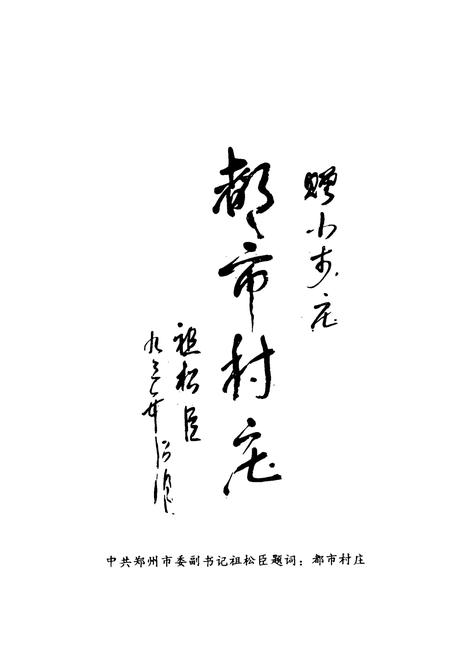 赠小庄
都市村庄
祖松臣
九三年
中共郑州市委副书记祖松臣题词：都市村庄